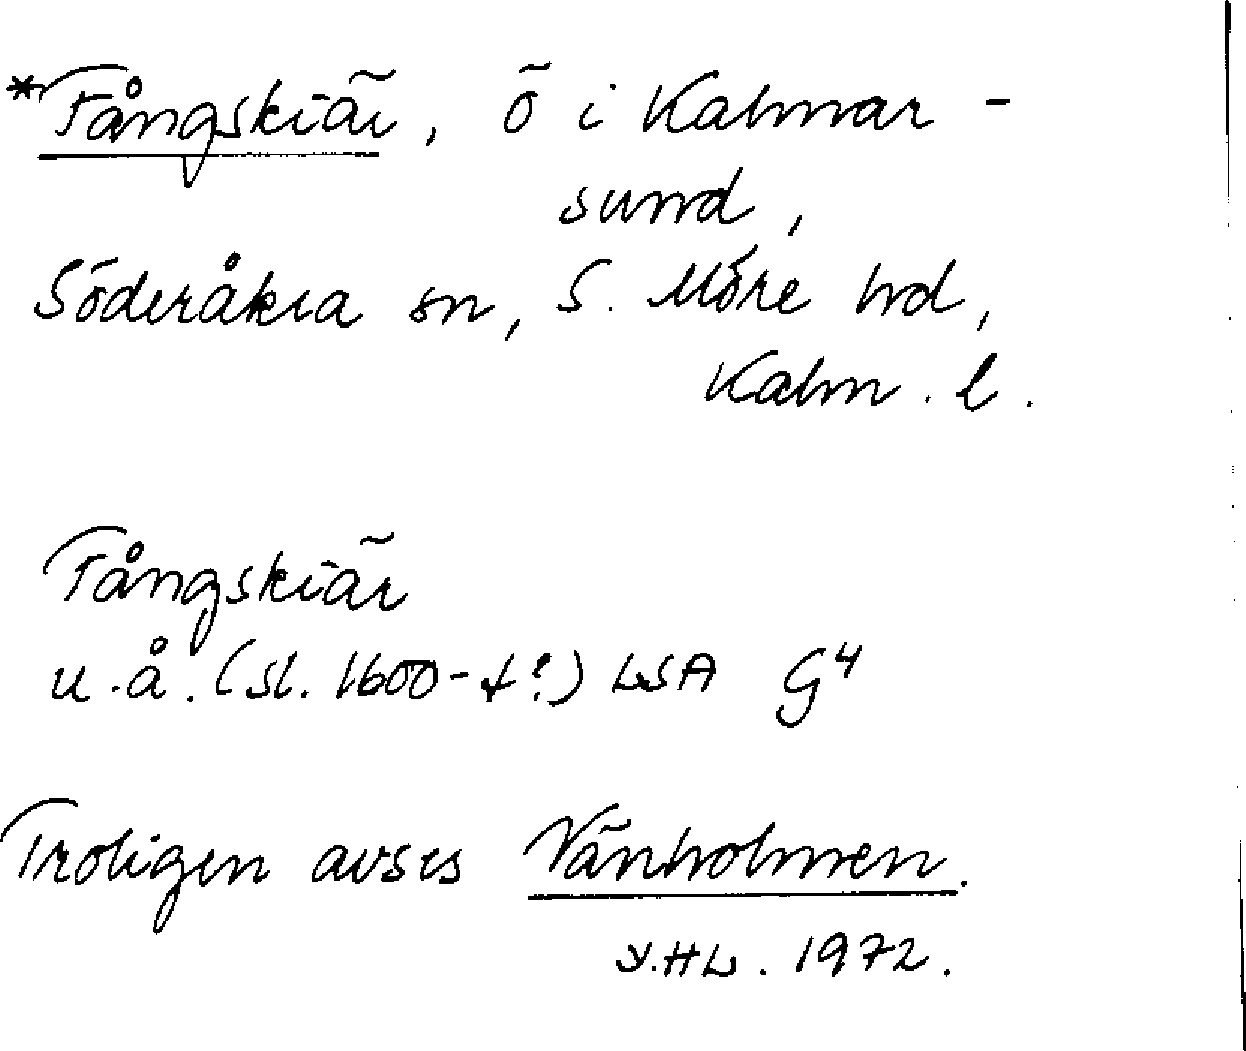 *Tångskiär, ö i Kalmar-
sund,
Söderåkra sn, S. Möre hd,
Kalm. l.
Tångskiär
u.å. (sl. 1600-t?) LSA G4
Troligen avses Vänholmen.
Y.HL. 1972.